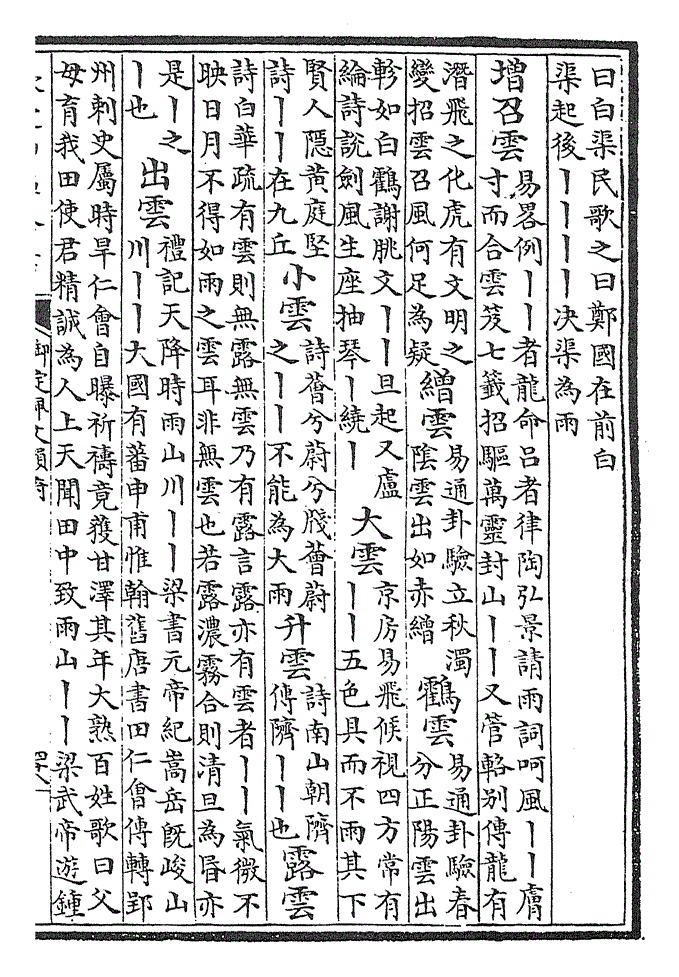 曰白渠民歌之曰鄭國在前白
渠起後丨丨丨丨决渠為雨
增召雲
易畧例丨丨者龍命吕者律陶弘景請雨詞呵風丨丨膚
寸而合雲笈七籤招驅萬靈封山丨丨又管輅别傳龍有
潛飛之化虎有文明之
變招雲召風何足為疑
繒雲
易通卦驗立秋濁
陰雲出如赤繒
鸖雲
易通卦驗春
分正陽雲出
軫如白鸖謝朓文丨丨旦起又盧
綸詩說劍風生座抽琴丨繞丨
大雲
京房易飛候視四方常有
丨丨五色具而不雨其下
賢人隱黄庭堅
詩丨丨在九丘
小雲
詩薈兮蔚兮牋薈蔚
之丨丨不能為大雨
升雲
詩南山朝隮
傳隮丨丨也
露雲
詩白華疏有雲則無露無雲乃有露言露亦有雲者丨丨氣微不
映日月不得如雨之雲耳非無雲也若露濃霧合則清旦為昏亦
是丨之
丨也
出雲
禮記天降時雨山川丨丨梁書元帝紀嵩岳既峻山
川丨丨大國有蕃申甫惟翰舊唐書田仁㑹傳轉郢
州刺史屬時旱仁㑹自曝祈禱竟獲甘澤其年大熟百姓歌曰父
母育我田使君精誠為人上天聞田中致雨山丨丨梁武帝遊鍾